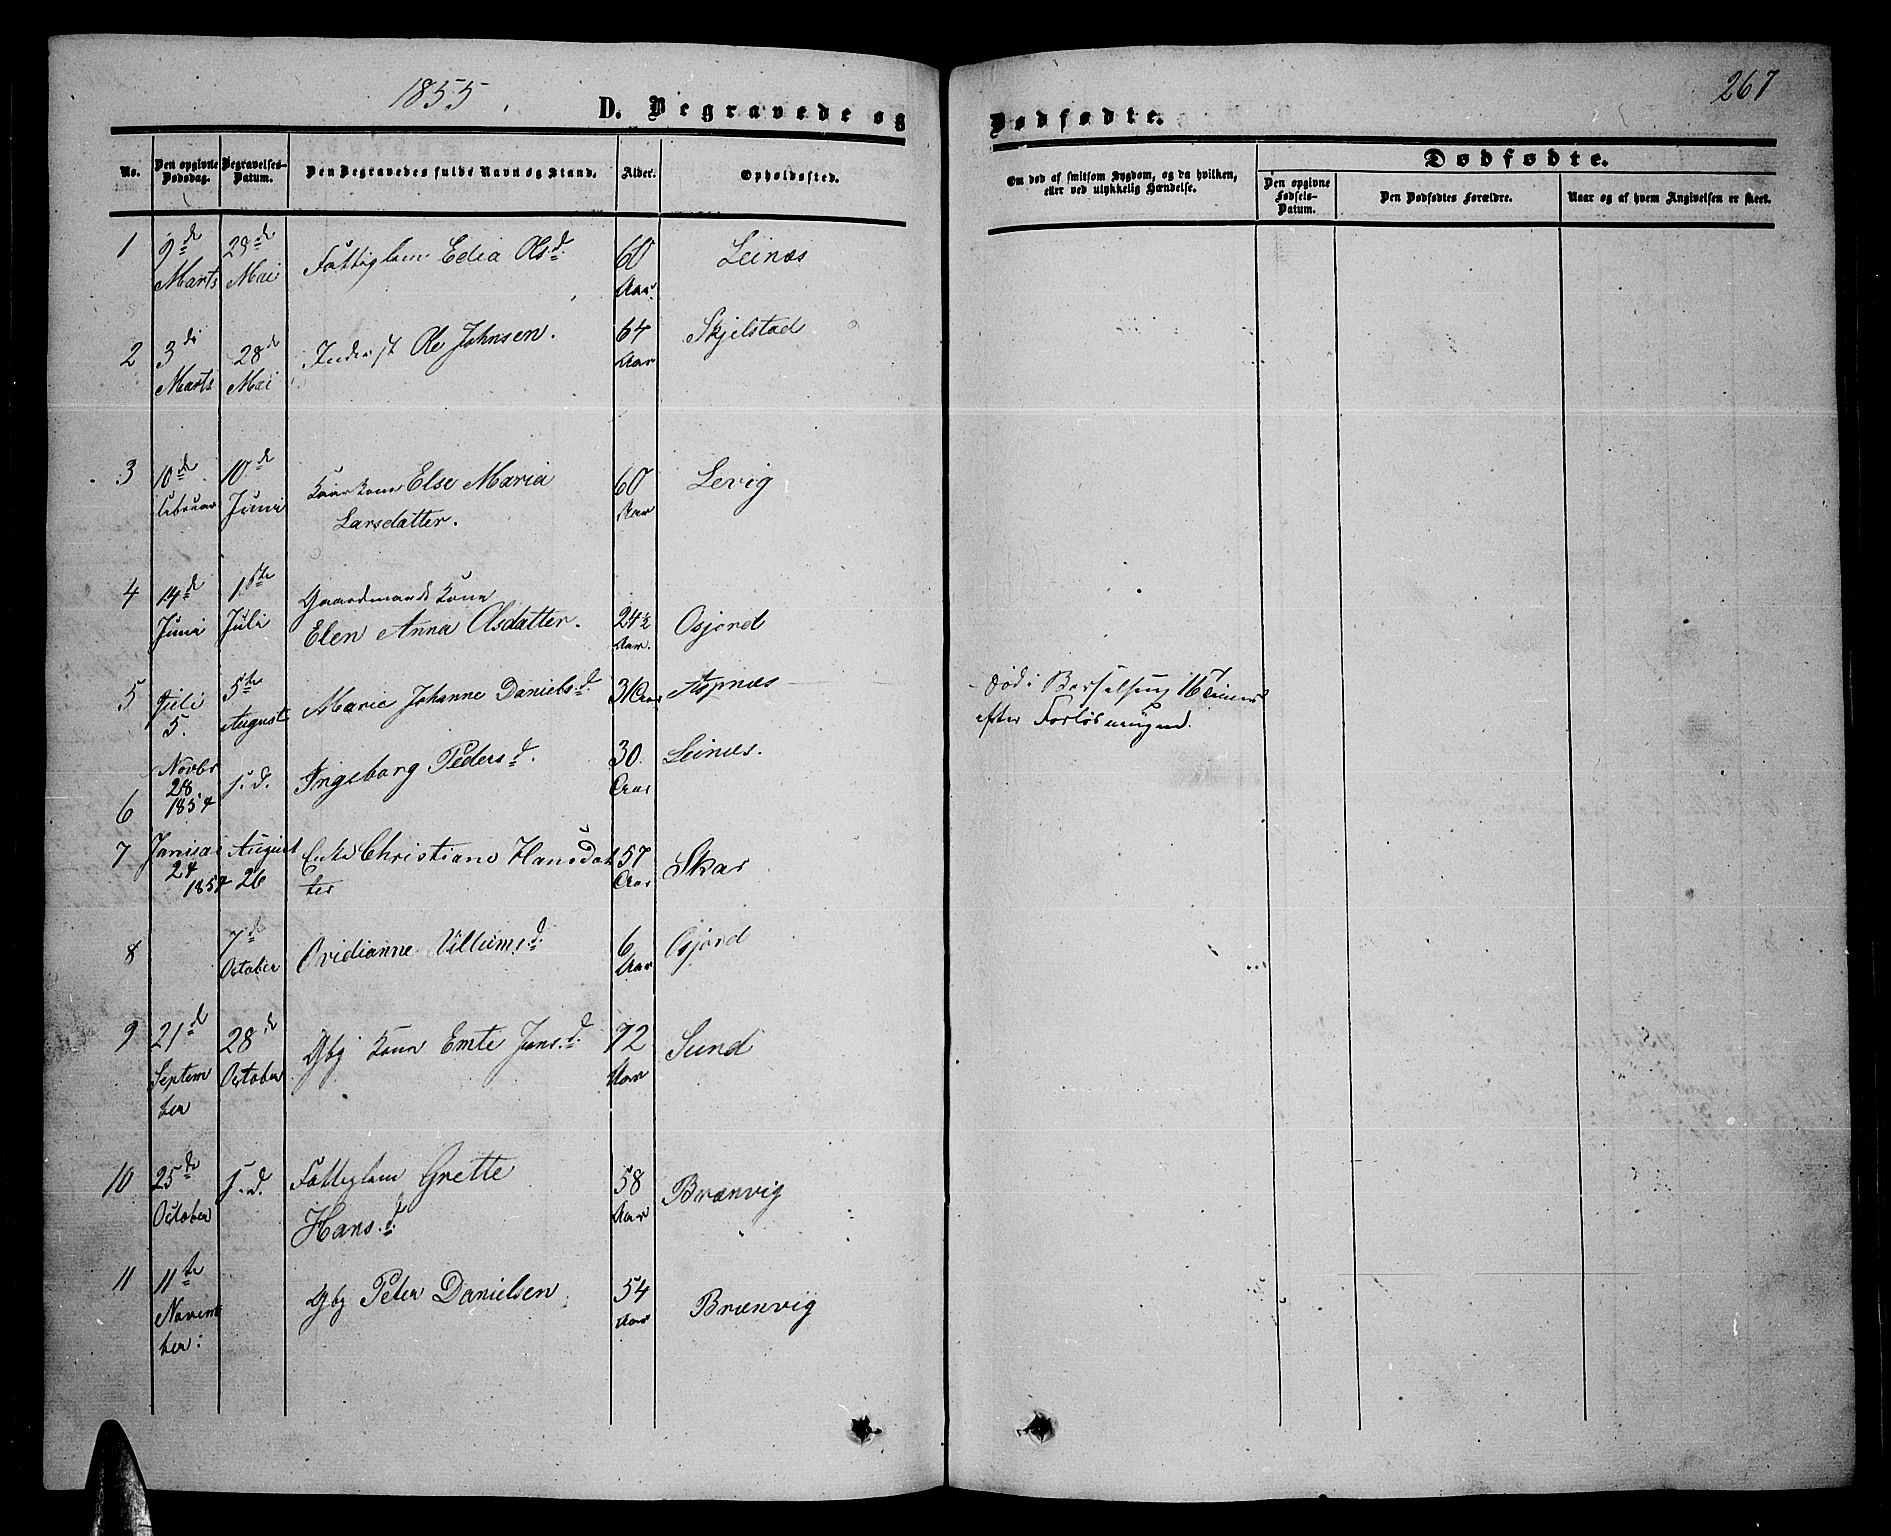 1855.
267
D. Begravede og Dødfødte.
No.
Den opgivne Dødsdag.
Begravelses-Datum.
Den Begravedes fulde Navn og Stand.
Alder.
Opholdssted.
Om død af smitsom Sygdom, og da hvilken, eller ved ulykkelig Hændelse.
Dødfødte.
Den opgivne Fødsels-Datum.
Den Dødfødtes Forældre.
Naar og af hvem Angivelsen er skeet.
1 9de Marts 29de Mai Fattiglem Edia Olsd. 60 Aar. Leinæs
2 3di Marts 28de Mai Inderst Ole Johnsen. 64 Aar Skjelstad
3 10de Februar 10de Juni Kaarkone Else Maria Larsdatter. 60 Aar Levig
4 14de Juni 1ste Juli Gaardmands Kone Elen Anna Olsdatter. 24½ Aar. Osjord
5 Juli 5. 5te August Marie Johanne Danielsd. 31 Aar Aspnæs
død i Barselseng 16 Timer efter Forløsningen.
6 Novbr 28 1854 s. d. Ingeborg Pedersd. 30. Aar Leinæs.
7 Januar 24 1854 August 26 Enke Christiane Hansdatter 57 Aar Skar
8 7de October Ovidianne Villumsd. 6 Aar Osjord
9 21de September 28de October Gbr Kone Emte Jonsd. 72 Aar Sund
10 25de October s. d. Fattiglem Grette Hansd. 58 Aar Brænvig
11 11te November: Gbr Peter Danielsen 54 Aar Brænvig